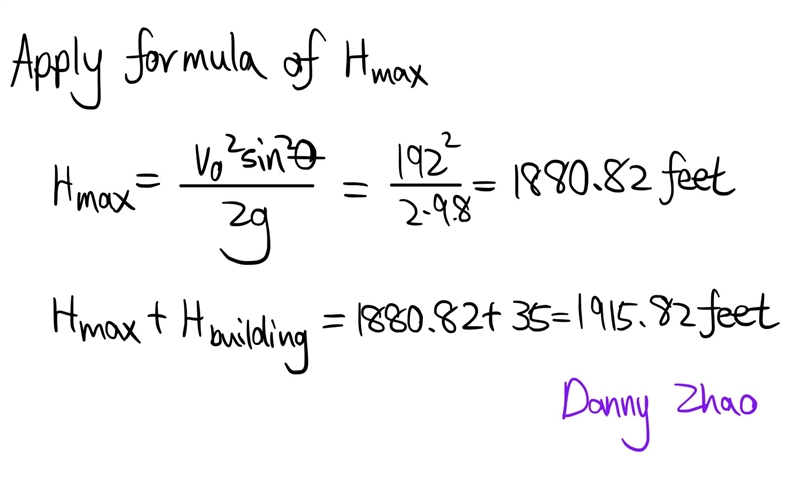 Apply formula of Hmax
Hmax = V₀²sin²θ / 2g = 192² / 2·9.8 = 1880.82 feet
Hmax + Hbuilding = 1880.82 + 35 = 1915.82 feet
Danny Zhao